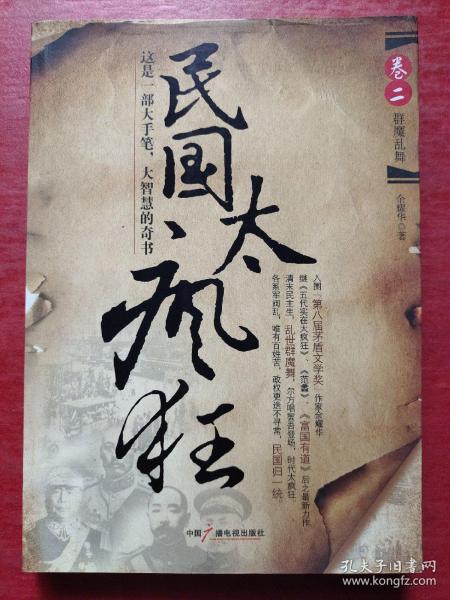 卷二
群魔乱舞
余耀华 著
民国、太疯狂
这是一部大手笔、大智慧的奇书
入围“第八届茅盾文学奖”作家余耀华
继《五代实在太疯狂》、《范蠡》、《富国有道》后之最新力作
清末民主生，乱世群魔舞，尔方唱罢吾登场，时代太疯狂。
各系军阀乱，唯有百姓苦，政权更迭不寻常，民国归一统。
中国广播电视出版社
孔夫子旧书网
www.kongfz.com